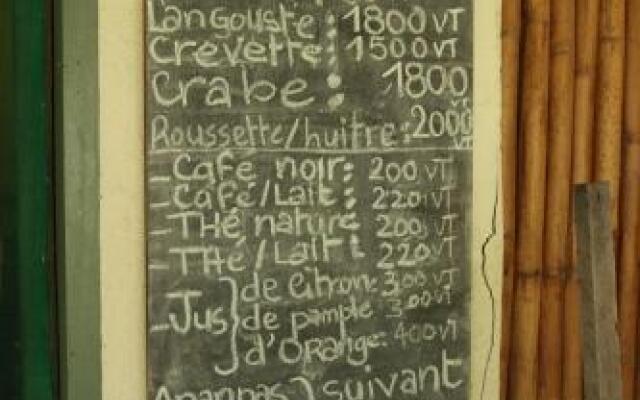 Langouste: 1800 VT
Crevette: 1500 VT
Crabe: 1800 VT
Roussette/huître: 2000 VT
- Café noir: 200 VT
- Café/Lait: 220 VT
- THé nature 200 VT
- THé/Lait: 220 VT
- Jus } de Citron: 300 VT
de pample 300 VT
d'ORange: 400 VT
Ananas } suivant